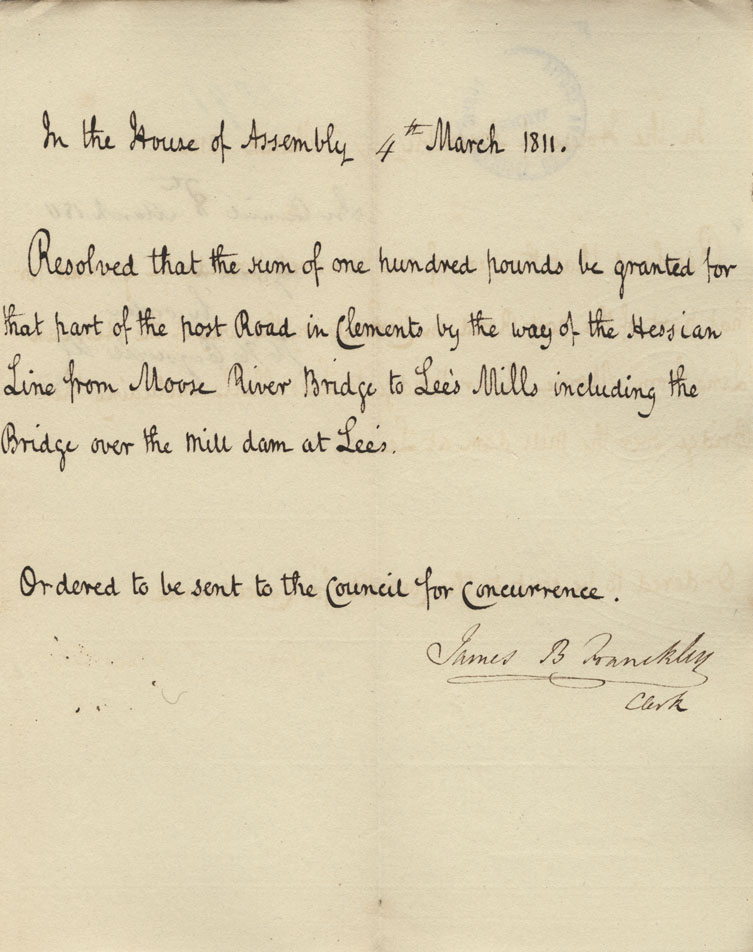 In the House of Assembly 4th March 1811.
Resolved that the sum of one hundred pounds be granted for
that part of the post Road in Clements by the way of the Hessian
Line from Moose River Bridge to Lee's Mills including the
Bridge over the Mill dam at Lee's.
Ordered to be sent to the Council for Concurrence.
James B Franckley
Clerk